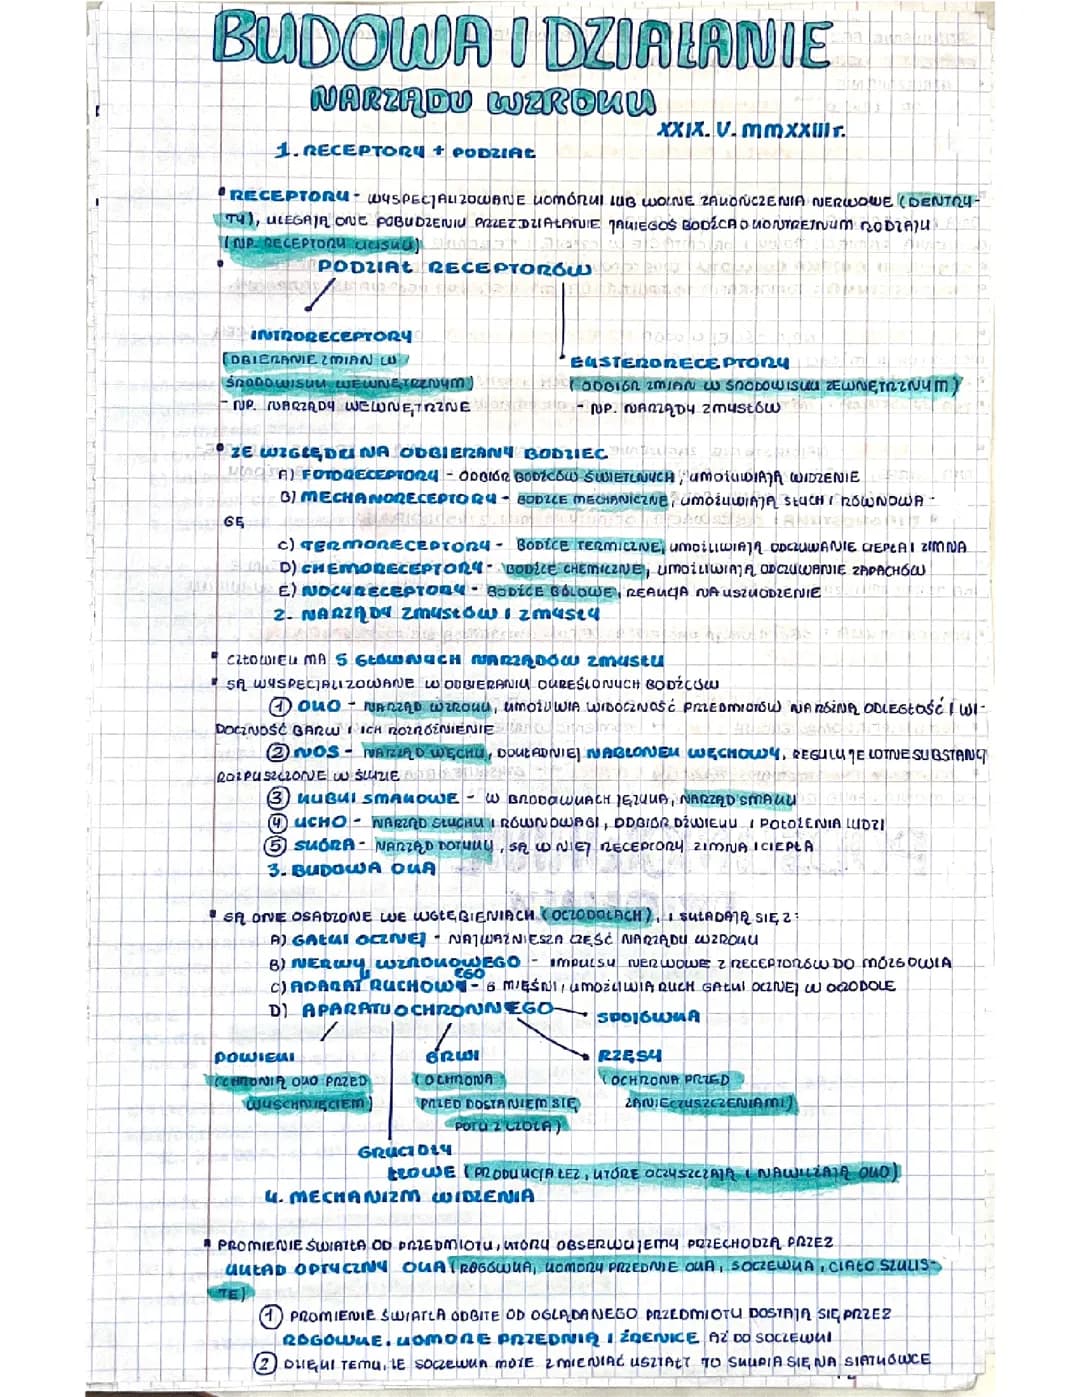 BUDOWA I DZIAŁANIE
NARZĄDU WZROKU
XXIX. V. MMXXIII r.
1. RECEPTORY + PODZIAŁ
• RECEPTORY - WYSPECJALIZOWANE KOMÓRKI LUB WOLNE ZAKOŃCZENIA NERWOWE (DENTRY-
TY), ULEGAJĄ ONE POBUDZENIU PRZEZ DZIAŁANIE JAKIEGOŚ BODŹCA O KONTRETNYM RODZAJU
(NP. RECEPTORY UCISKU)
• PODZIAŁ RECEPTORÓW
INTRORECEPTORY
(OBIERANIE ZMIAN W
ŚRODOWISKU WEWNĘTRZNYM)
- NP. NARZĄDY WEWNĘTRZNE
EKSTERORECEPTORY
(ODBIÓR ZMIAN W ŚRODOWISKU ZEWNĘTRZNYM)
- NP. NARZĄDY ZMYSŁÓW
• ZE WZGLĘDU NA ODBIERANY BODZIEC
A) FOTORECEPTORY - ODBIÓR BODŹCÓW ŚWIETLNYCH, UMOŻLIWIAJĄ WIDZENIE
B) MECHANORECEPTORY - BODŹCE MECHANICZNE, UMOŻLIWIAJĄ SŁUCH I RÓWNOWA-
GĘ
C) TERMORECEPTORY - BODŹCE TERMICZNE, UMOŻLIWIAJĄ ODCZUWANIE CIEPŁA I ZIMNA
D) CHEMORECEPTORY - BODŹCE CHEMICZNE, UMOŻLIWIAJĄ ODCZUWANIE ZAPACHÓW
E) NOCYRECEPTORY - BODŹCE BÓLOWE, REAKCJA NA USZKODZENIE
2. NARZĄDY ZMYSŁÓW I ZMYSŁY
• CZŁOWIEK MA 5 GŁÓWNYCH NARZĄDÓW ZMYSŁU
• SĄ WYSPECJALIZOWANE W ODBIERANIU OKREŚLONYCH BODŹCÓW
① OKO - NARZĄD WZROKU, UMOŻLIWIA WIDOCZNOŚĆ PRZEDMIOTÓW NA RÓŻNĄ ODLEGŁOŚĆ I WI-
DOCZNOŚĆ BARW I ICH ROZRÓŻNIENIE
② NOS - NARZĄD WĘCHU, DOKŁADNIEJ NABŁONEK WĘCHOWY, REGULUJE LOTNE SUBSTANCJ
ROZPUSZCZONE W ŚLUZIE
③ KUBKI SMAKOWE - W BRODAWKACH JĘZYKA, NARZĄD SMAKU
④ UCHO - NARZĄD SŁUCHU I RÓWNOWAGI, ODBIÓR DŹWIĘKU I POŁOŻENIA LUDZI
⑤ SKÓRA - NARZĄD DOTYKU, SĄ W NIEJ RECEPTORY ZIMNA I CIEPŁA
3. BUDOWA OKA
• SĄ ONE OSADZONE WE WGŁĘBIENIACH (OCZODOŁACH), I SKŁADAJĄ SIĘ Z:
A) GAŁKI OCZNEJ - NAJWAŻNIESZA CZĘŚĆ NARZĄDU WZROKU
B) NERWU WZROKOWEGO - IMPULSY NERWOWE Z RECEPTORÓW DO MÓZGOWIA
C) APARATU RUCHOWEGO - 6 MIĘŚNI, UMOŻLIWIA RUCH GAŁKI OCZNEJ W OCZODOLE
D) APARATU OCHRONNEGO
SPOJÓWKA
POWIEKI
(CHRONIĄ OKO PRZED
WYSCHNIĘCIEM)
BRWI
(OCHRONA
PRZED DOSTANIEM SIĘ
POTU Z CZOŁA)
RZĘSY
(OCHRONA PRZED
ZANIECZYSZCZENIAMI)
GRUCZOŁY
ŁZOWE (PRODUKCJA ŁEZ, KTÓRE OCZYSZCZAJĄ I NAWILŻAJĄ OKO)
4. MECHANIZM WIDZENIA
• PROMIENIE ŚWIATŁA OD PRZEDMIOTU, KTÓRY OBSERWUJEMY PRZECHODZĄ PRZEZ
UKŁAD OPTYCZNY OKA (ROGÓWKA, KOMORY PRZEDNIE OKA, SOCZEWKA, CIAŁO SZKLIS-
TE)
① PROMIENIE ŚWIATŁA ODBITE OD OGLĄDANEGO PRZEDMIOTU DOSTAJĄ SIĘ PRZEZ
ROGÓWKĘ, KOMORĘ PRZEDNIĄ I ŹRENICE AŻ DO SOCZEWKI
② DZIĘKI TEMU, ŻE SOCZEWKA MOŻE ZMIENIAĆ KSZTAŁT TO SKUPIA SIĘ NA SIATKÓWCE